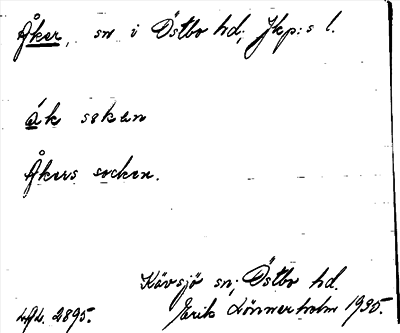 Åker, sn i Östbo hd; Jkp:s l.
åk sokən
Åkers socken.
Kävsjö sn; Östbo hd.
2895. Erik Lönnerholm 1935.